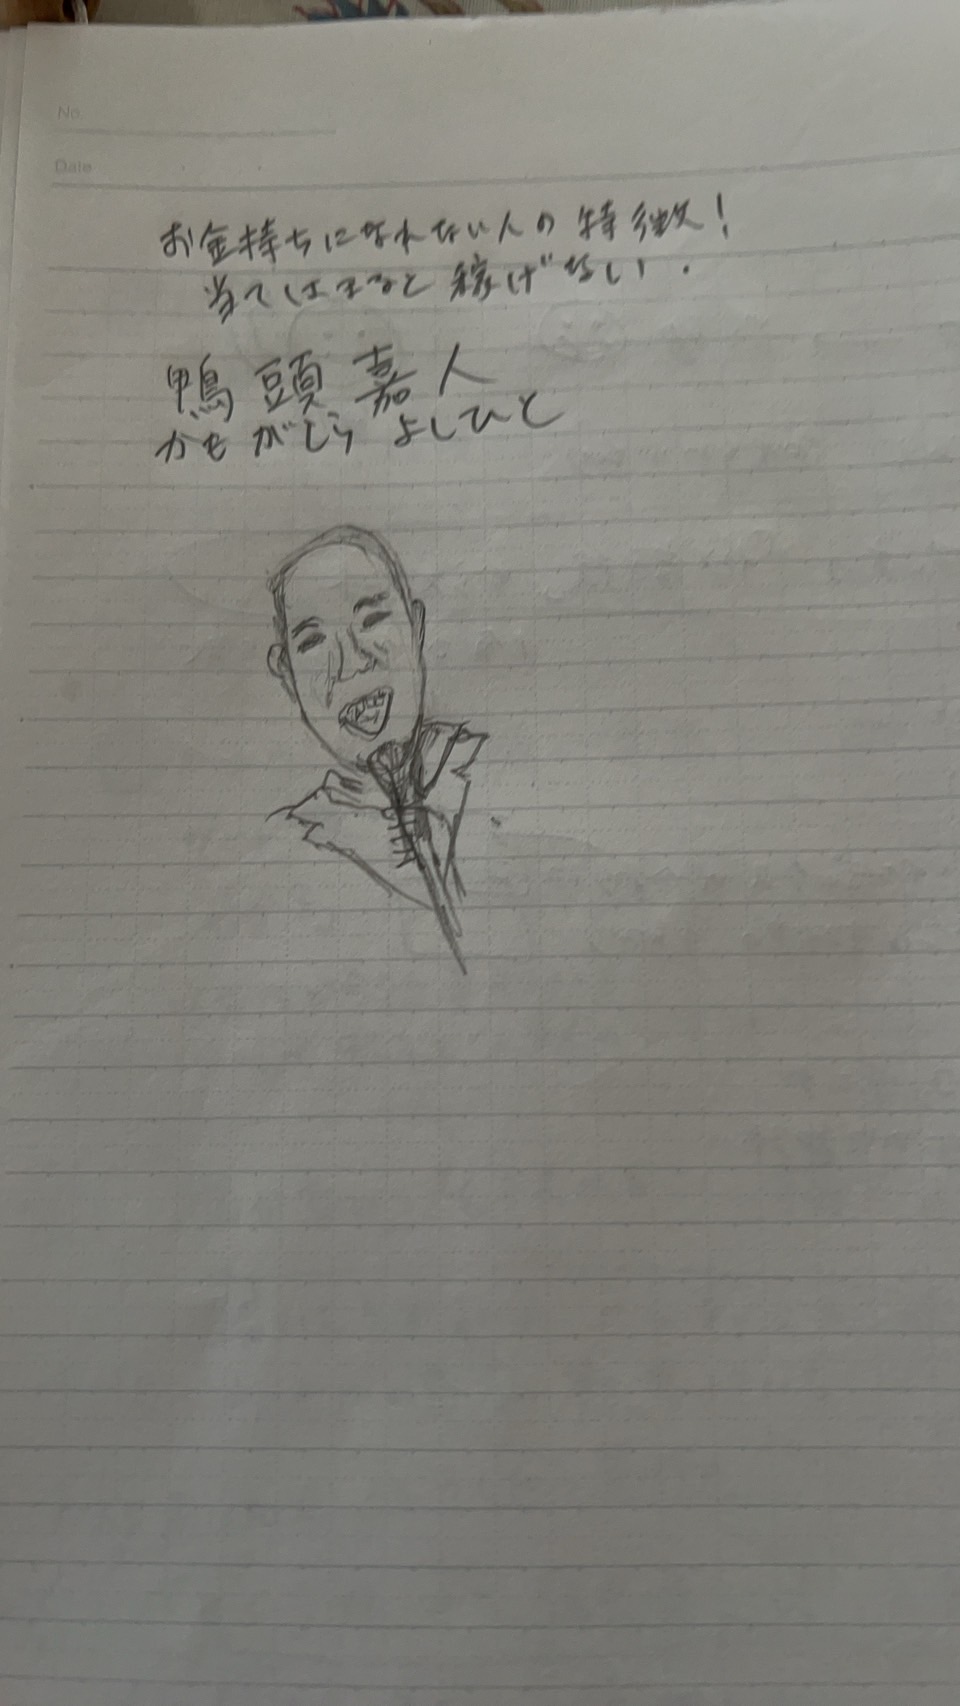 No.
Date
お金持ちになれない人の特徴!
当てはまると稼げない.
鴨頭嘉人
かもがしら よしひと